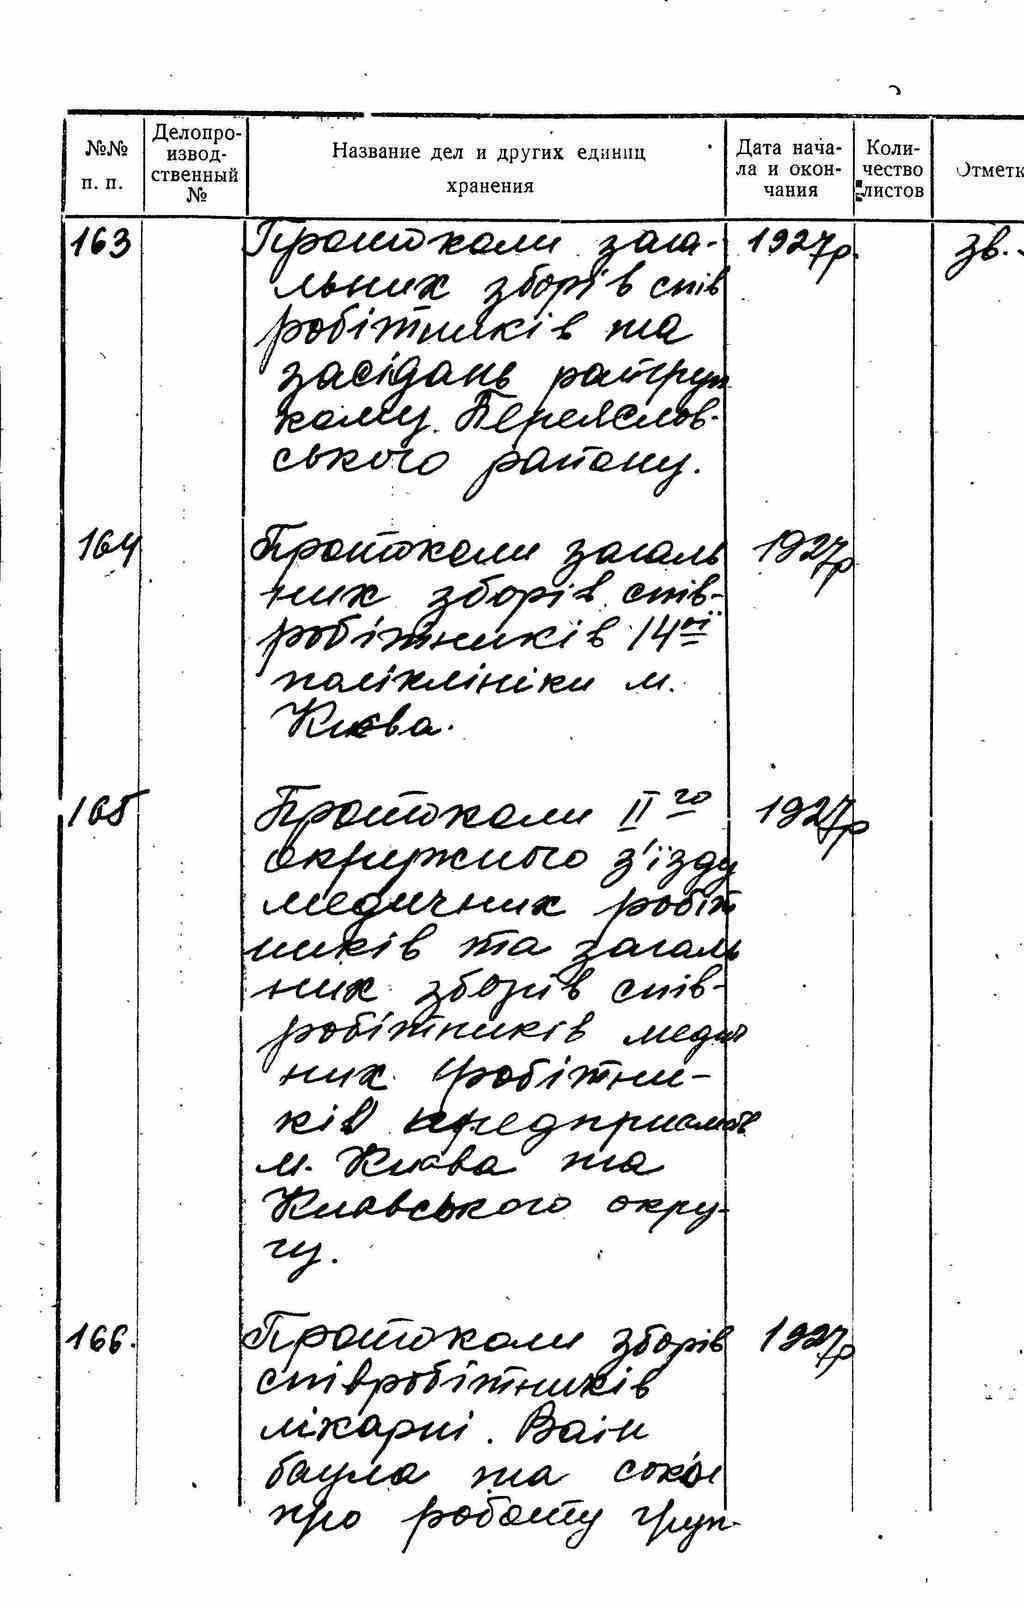 №№ п. п.
Делопро-
извод-
ственный
№
Название дел и других единиц
хранения
Дата нача-
ла и окон-
чания
Коли-
чество
листов
Отметк
163 Протоколи зага- 1927р. зв.
льних зборів спів
робітників та
засідань райгруп
кому Переяслов-
ського району.
164 Протоколи загаль 1927р
них зборів спів-
робітників 14ої
поліклініки м.
Києва.
165 Протоколи II го 1927р
окружного з'їзду
медичних робіт
ників та загаль
них зборів спів-
робітників медич
них робітни-
ків
м. Києва та
Київського окру-
гу.
166. Протоколи зборів 1927р
співробітників
лікарні
та
про роботу груп-